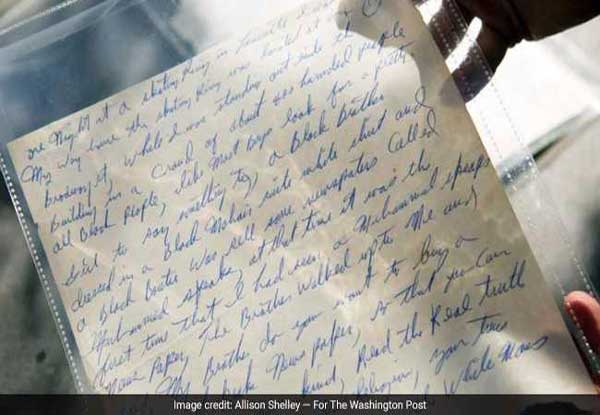 one Night at a skating Ring in
My way home the skating Ring was located at
broadway st, while I was standing out side the
Building in a crowd of about 400 hundred people
all Black people, like most Boys look for a pretty
Girl to say something to, a Black Brother
dressed in a Black Mohair suite white shirt and
a Black Bowtie was sell some newspapers Called
Muhammad speaks, at that time it was the
first time that I had seen a Muhammad speaks
News Paper, The Brother walked up to me and
My Brother do you want to Buy a
News paper, so that you can
kind, Read the Real truth
Religion, your True
White Mans
Image credit: Allison Shelley — For The Washington Post